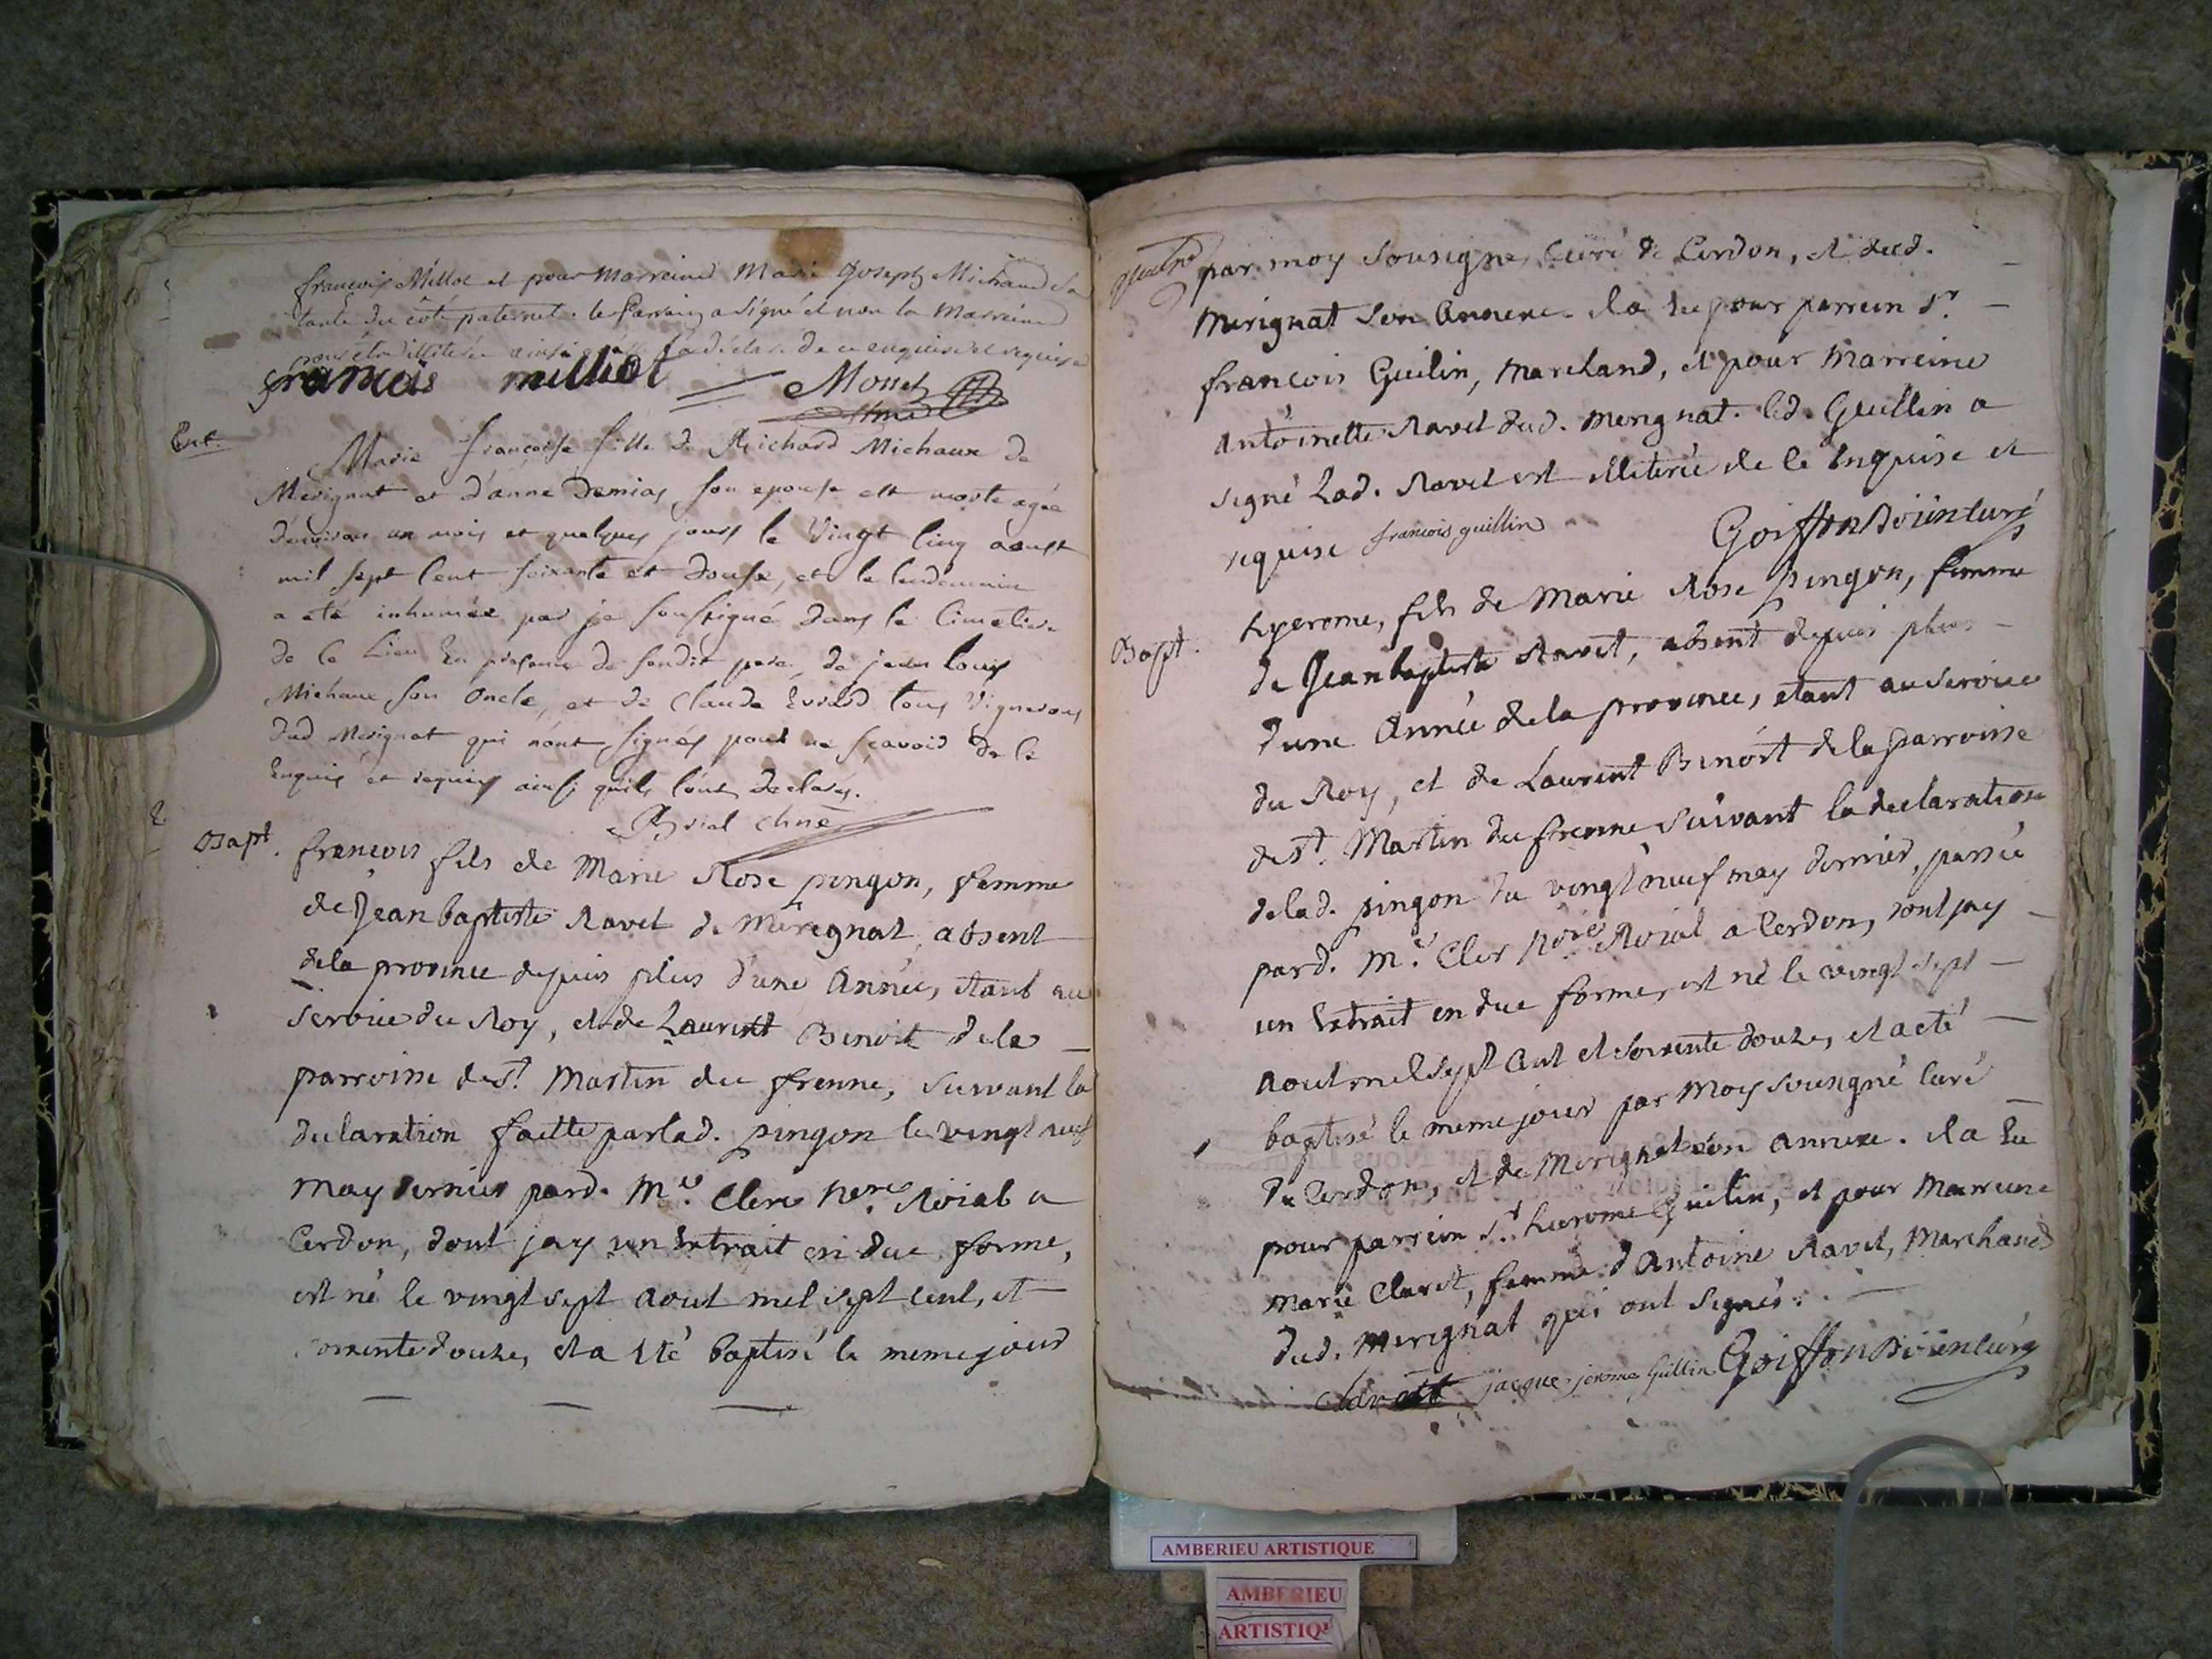 francois Millot et pour Marreine Marie Joseph Michaud Sa
tante du côté paternel. le Parrain a signé et non la Marreine
pour être illitérée ainsi qu'elle l'a déclaré de ce enquise et requise
francois milliot Monet
Ent.
Marie francoise fille de Richard Michaux de
Merignat et d'anne Demias son epouse est morte agée
d'environ un mois et quelques jours le Vingt Cinq aoust
mil sept Cent soixante et douse, et le lendemain
a eté inhumée par je soussigné dans le Cimetiere
de ce Lieu En presence de sondit pere, de jean louis
Michaux son oncle, et de Claude Evrard tous Vignerons
dud Merignat qui n'ont signés pour ne sçavoir de ce
Enquis et requis ainsi quils l'ont declarés.
Bapt.
francois fils de Marie Rose pingon, femme
de Jean baptiste Ravet de Merignat, absent
de la province depuis plus d'une Année, etant au
service du Roy, et de Laurent Benoit de la
parroisse de st. Martin du frenne, suivant la
declaration faitte par lad. pingon le vingt neuf
may dernier pard. Me. Clerc nore. Roial a
Cerdon, dont jay un Extrait en due forme,
est né le vingt sept aout mil sept cent, et
soixente douze, et a été baptisé le meme jour
par moy sousigné, Curé de Cerdon, et dud.
Merignat son annexe. il a eu pour parrein sr.
francois Guilin, Marchand, et pour Marreine
Antoinette Ravet dud. Merignat. led. Guillin a
signé Lad. Ravet est illiterée de ce enquise et
requise francois guillin Goiffon Doüen curé
Bapt.
hyerome, fils de Marie Rose pingon, femme
de Jean baptiste Ravet, absent depuis plus
dune Année de la province, etant au service
du Roy, et de Laurent Benoit de la parroisse
de st. Martin du frenne suivant la declaration
de lad. pingon du vingt neuf may dernier, passée
pard. Me. Cler nore Roial a Cerdon, dont jay
un Extrait en due forme, est né le vingt sept
aout mil sept cent et soixente douze, et a eté
baptisé le meme jour par Moy sousigné Curé
de Cerdon, et de Merignat son annexe. il a Eu
pour parrein sr. hierome Guilin, et pour Marreine
Marie Claret, femme d'Antoine Ravet, Marchand
dud. Merignat qui ont signés.
Claret jacque jerome Guillin Goiffon Doüen curé
AMBERIEU ARTISTIQUE
AMBERIEU
ARTISTIQ